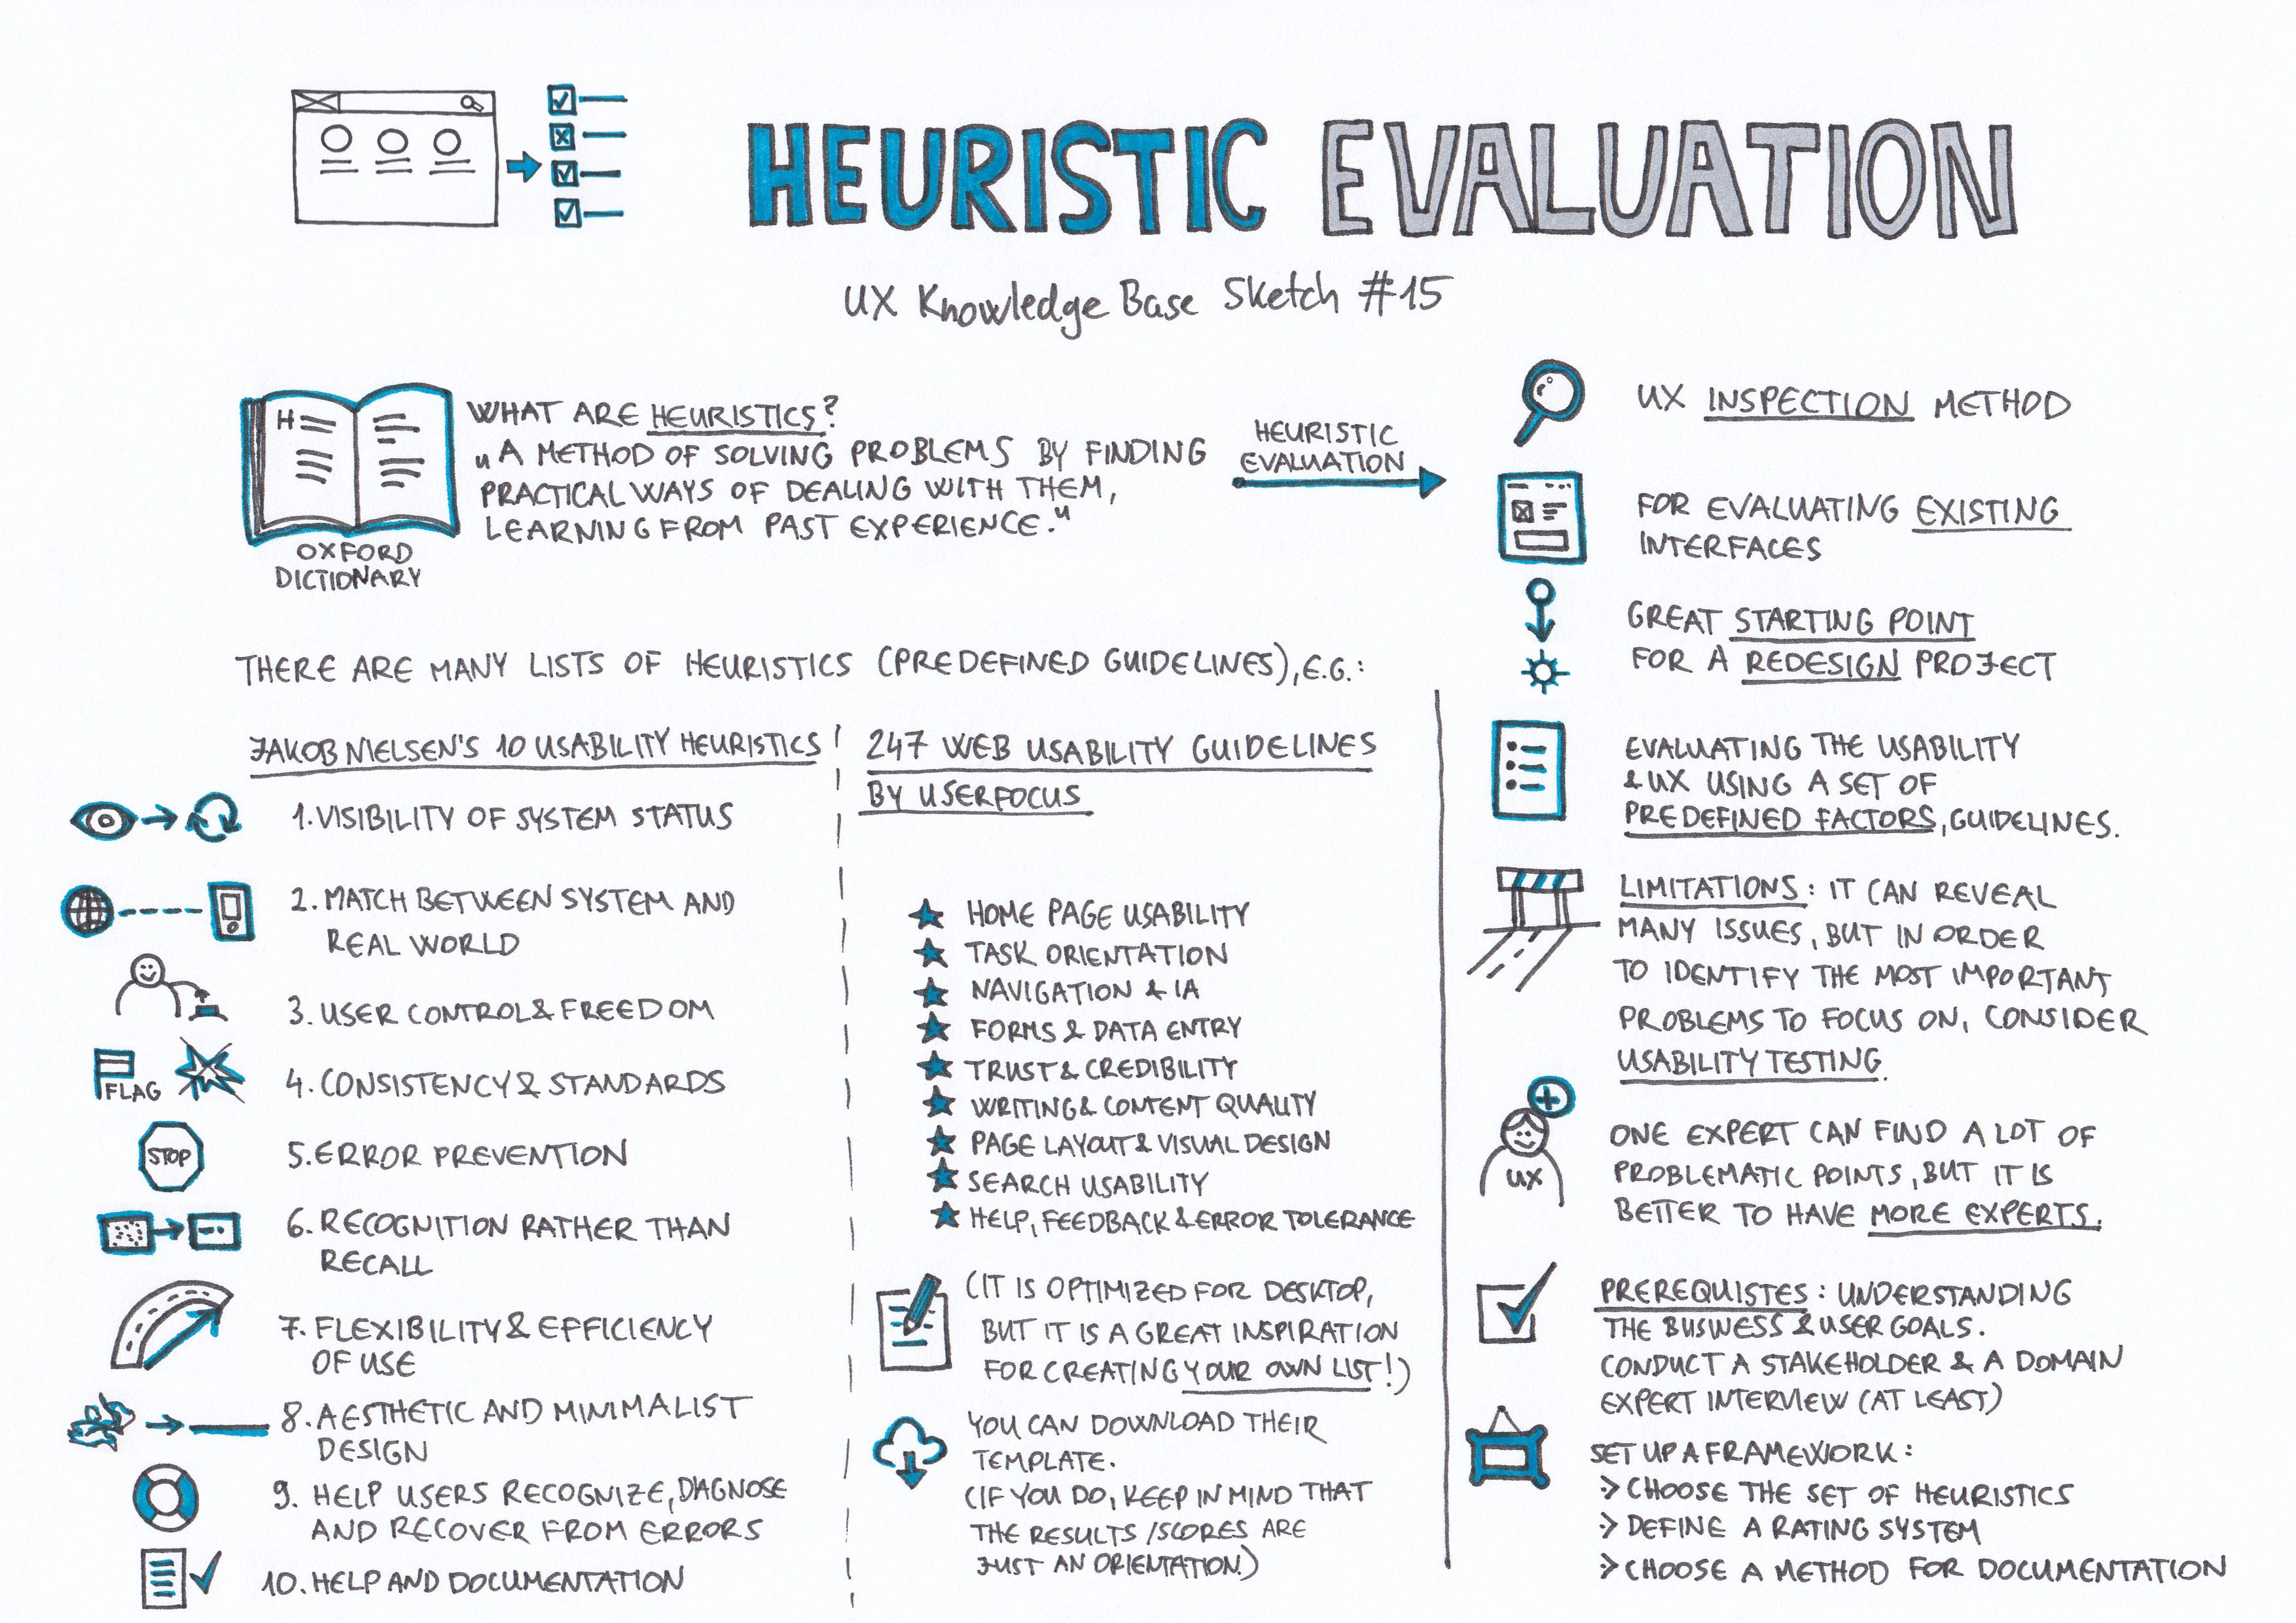 HEURISTIC EVALUATION
UX Knowledge Base Sketch #15
H
OXFORD
DICTIONARY
WHAT ARE HEURISTICS?
„A METHOD OF SOLVING PROBLEMS BY FINDING
PRACTICAL WAYS OF DEALING WITH THEM,
LEARNING FROM PAST EXPERIENCE."
HEURISTIC
EVALUATION
UX INSPECTION METHOD
FOR EVALUATING EXISTING
INTERFACES
GREAT STARTING POINT
FOR A REDESIGN PROJECT
EVALUATING THE USABILITY
& UX USING A SET OF
PREDEFINED FACTORS, GUIDELINES.
LIMITATIONS: IT CAN REVEAL
MANY ISSUES, BUT IN ORDER
TO IDENTIFY THE MOST IMPORTANT
PROBLEMS TO FOCUS ON, CONSIDER
USABILITY TESTING.
UX
ONE EXPERT CAN FIND A LOT OF
PROBLEMATIC POINTS, BUT IT IS
BETTER TO HAVE MORE EXPERTS.
PREREQUISTES: UNDERSTANDING
THE BUSINESS & USER GOALS.
CONDUCT A STAKEHOLDER & A DOMAIN
EXPERT INTERVIEW (AT LEAST)
SET UP A FRAMEWORK:
> CHOOSE THE SET OF HEURISTICS
> DEFINE A RATING SYSTEM
> CHOOSE A METHOD FOR DOCUMENTATION
THERE ARE MANY LISTS OF HEURISTICS (PREDEFINED GUIDELINES), E.G.:
JAKOB NIELSEN'S 10 USABILITY HEURISTICS
1. VISIBILITY OF SYSTEM STATUS
2. MATCH BETWEEN SYSTEM AND
REAL WORLD
3. USER CONTROL & FREEDOM
FLAG
4. CONSISTENCY & STANDARDS
STOP
5. ERROR PREVENTION
6. RECOGNITION RATHER THAN
RECALL
7. FLEXIBILITY & EFFICIENCY
OF USE
8. AESTHETIC AND MINIMALIST
DESIGN
9. HELP USERS RECOGNIZE, DIAGNOSE
AND RECOVER FROM ERRORS
10. HELP AND DOCUMENTATION
247 WEB USABILITY GUIDELINES
BY USERFOCUS
★ HOME PAGE USABILITY
★ TASK ORIENTATION
★ NAVIGATION & IA
★ FORMS & DATA ENTRY
★ TRUST & CREDIBILITY
★ WRITING & CONTENT QUALITY
★ PAGE LAYOUT & VISUAL DESIGN
★ SEARCH USABILITY
★ HELP, FEEDBACK & ERROR TOLERANCE
(IT IS OPTIMIZED FOR DESKTOP,
BUT IT IS A GREAT INSPIRATION
FOR CREATING YOUR OWN LIST!)
YOU CAN DOWNLOAD THEIR
TEMPLATE.
(IF YOU DO, KEEP IN MIND THAT
THE RESULTS/SCORES ARE
JUST AN ORIENTATION.)